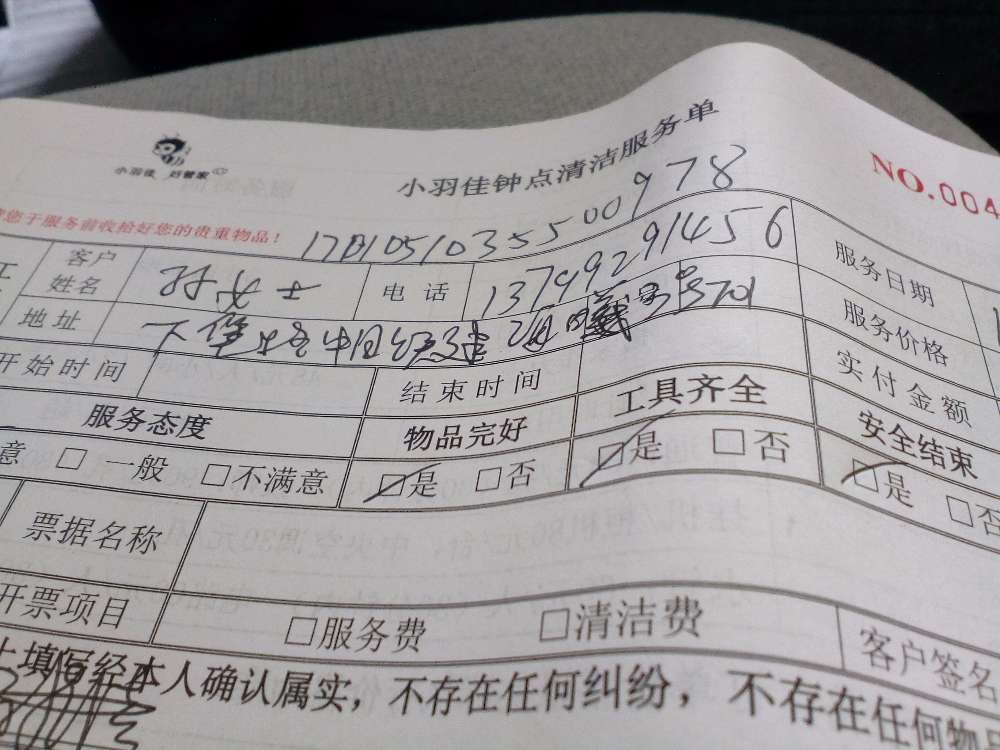 小羽佳 好管家
小羽佳钟点清洁服务单
NO.004
您于服务前收拾好您的贵重物品!
客户姓名 孙女士 电话 13799291456 服务日期
地址 701 服务价格
开始时间 结束时间 实付金额
服务态度 物品完好 工具齐全 安全结束
意 □一般 □不满意 □是 □否 □是 □否 □是 □否
票据名称
开票项目 □服务费 □清洁费 客户签名
填写经本人确认属实，不存在任何纠纷，不存在任何物品